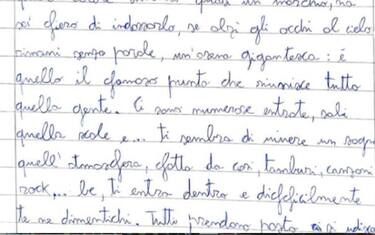 un moschio, ma
sei fiero di indossarlo, se alzi gli occhi al cielo
rimani senza parole, un'arena gigantesca: è
quello il famoso punto che riunisce tutto
quella gente. Ci sono numerose entrate, sali
quelle scale e... ti sembra di vivere un sogno
quell'atmosfera, fatta da cori, tamburi, canzoni
rock,... be, ti entra dentro e difficilmente
te ne dimentichi. Tutti prendono posto